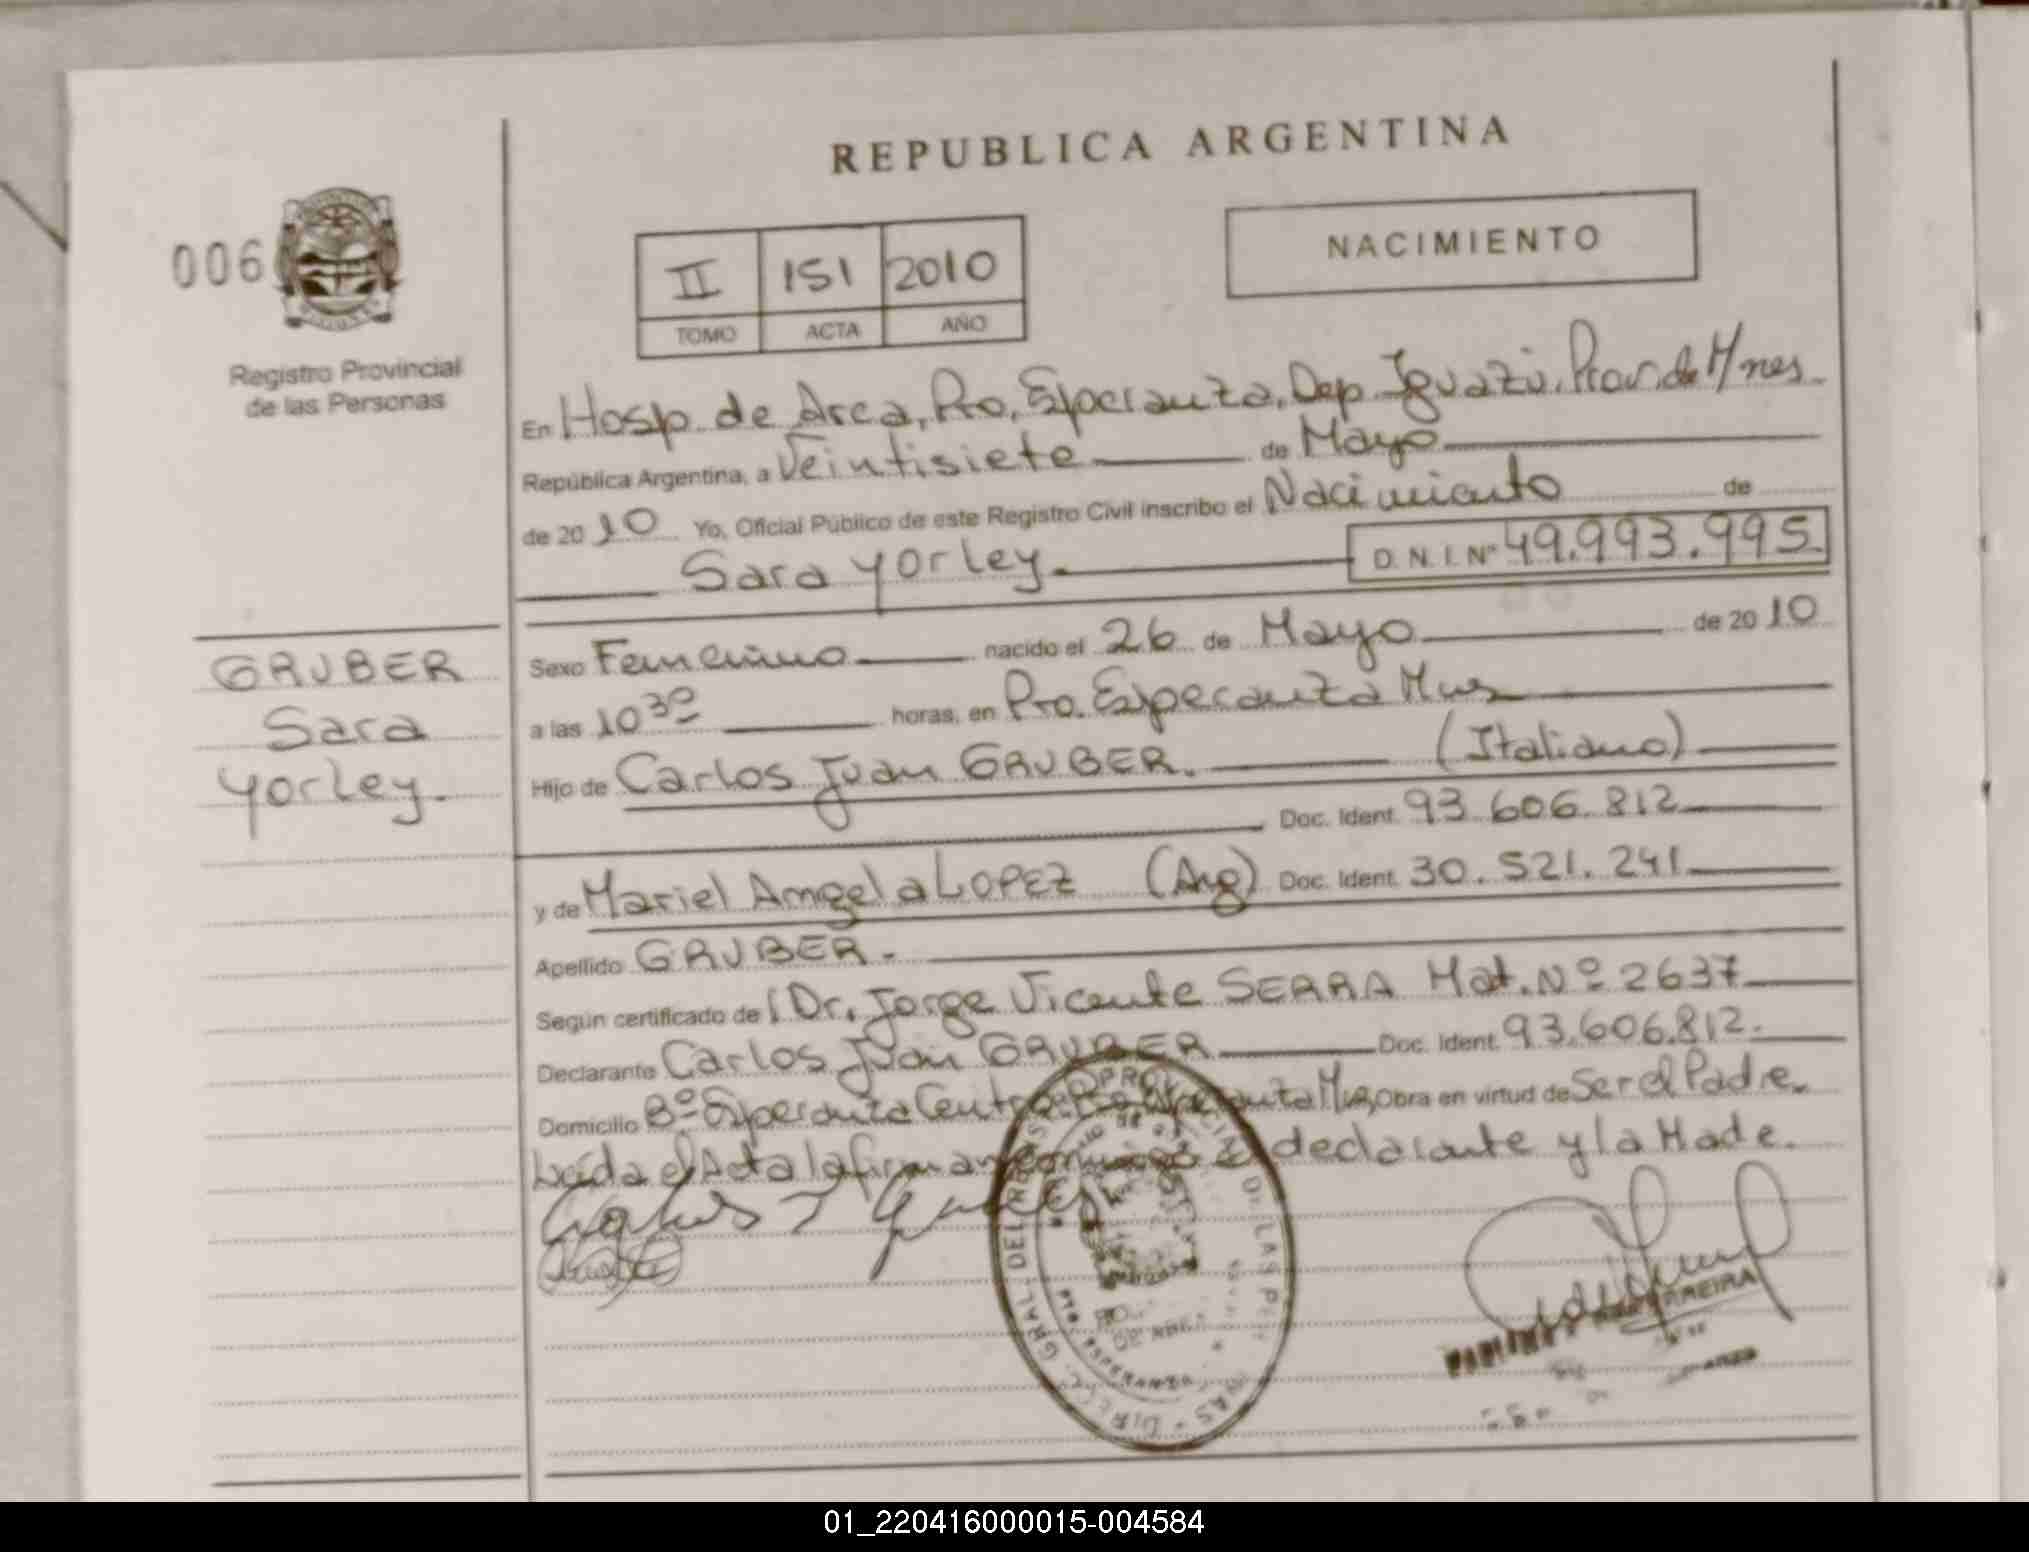 REPUBLICA ARGENTINA
006
II 151 2010
TOMO ACTA AÑO
NACIMIENTO
Registro Provincial
de las Personas
En Hosp. de Area, Pto. Esperanza, Dep. Iguazú, Prov. de Mnes.
República Argentina, a Veintisiete de Mayo
de 2010 Yo, Oficial Público de este Registro Civil inscribo el Nacimiento de
Sara Yorley. D.N.I.Nº 49.993.995.
GRUBER
Sara
Yorley.
Sexo Femenino nacido el 26 de Mayo de 2010
a las 10 30 horas, en Pto. Esperanza Mnes
Hijo de Carlos Juan GRUBER. (Italiano)
Doc. Ident. 93.606.812
y de Mariel Angela LOPEZ (Arg) Doc. Ident. 30.521.241
Apellido GRUBER.
Según certificado del Dr. Jorge Vicente SERRA Mat. Nº 2637
Declarante Carlos Juan GRUBER Doc. Ident. 93.606.812.
Domicilio Bº Esperanza Centro Obra en virtud de Ser el Padre.
Leida el Acta la firman declarante y la Made.
PTO ESPERANZA
01_220416000015-004584